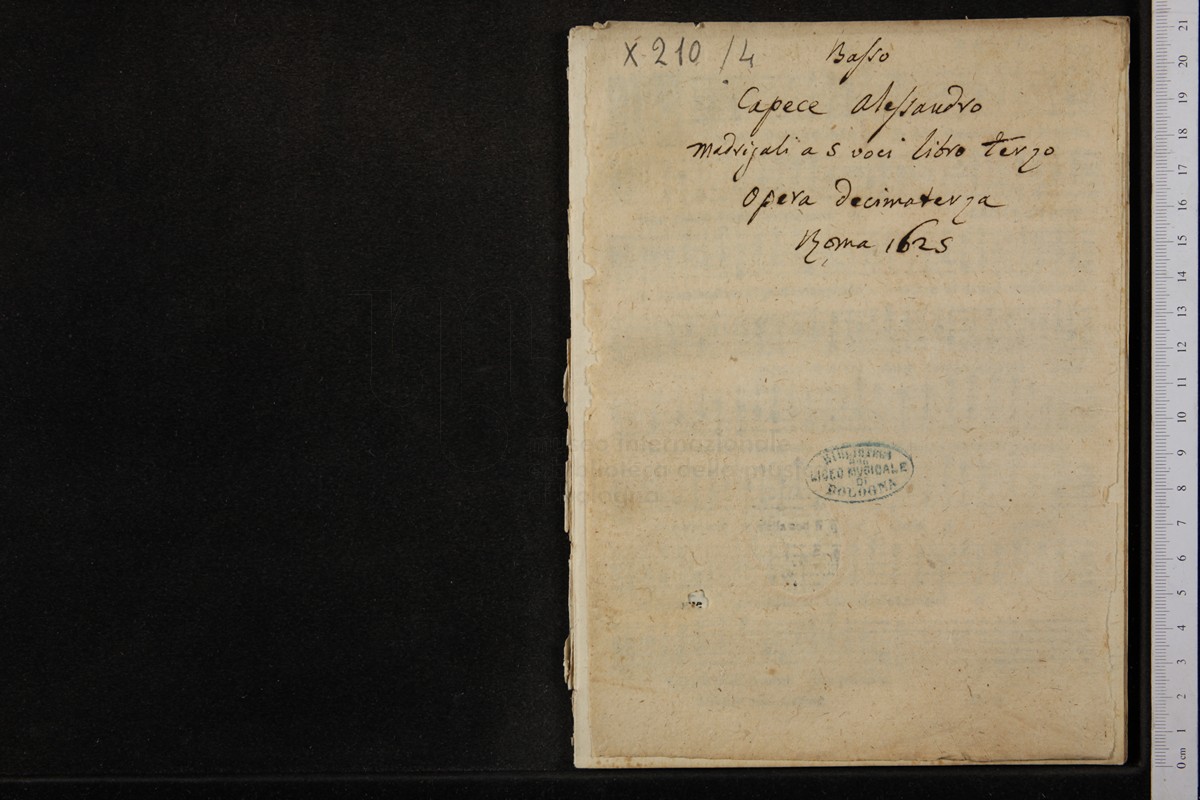 X 210 /4
Basso
Capece Alessandro
Madrigali a 5 voci libro terzo
Opera decimaterza
Roma 1625
museo internazionale
e biblioteca della musica
di bologna
BIBLIOTECA
DEL
LICEO MUSICALE
DI
BOLOGNA
0 cm 1 2 3 4 5 6 7 8 9 10 11 12 13 14 15 16 17 18 19 20 21